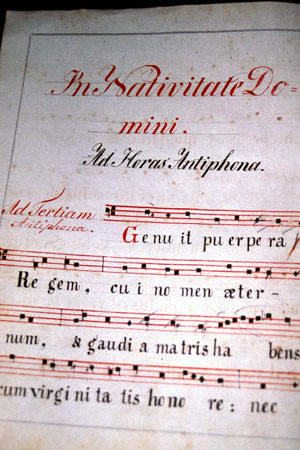 In Nativitate Do=
mini.
Ad Horas Antiphona.
Ad Tertiam
Antiphona.
Genu it pu er pe ra
Re gem, cu i no men æter-
num, & gaudi a matris ha bens
cum virgi ni ta tis hono re: nec